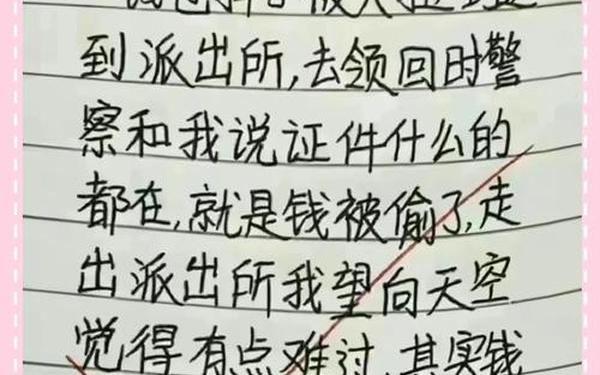 到派出所,去领回时警
察和我说证件什么的
都在,就是钱被偷了,走
出派出所我望向天空
觉得有点难过,其实钱